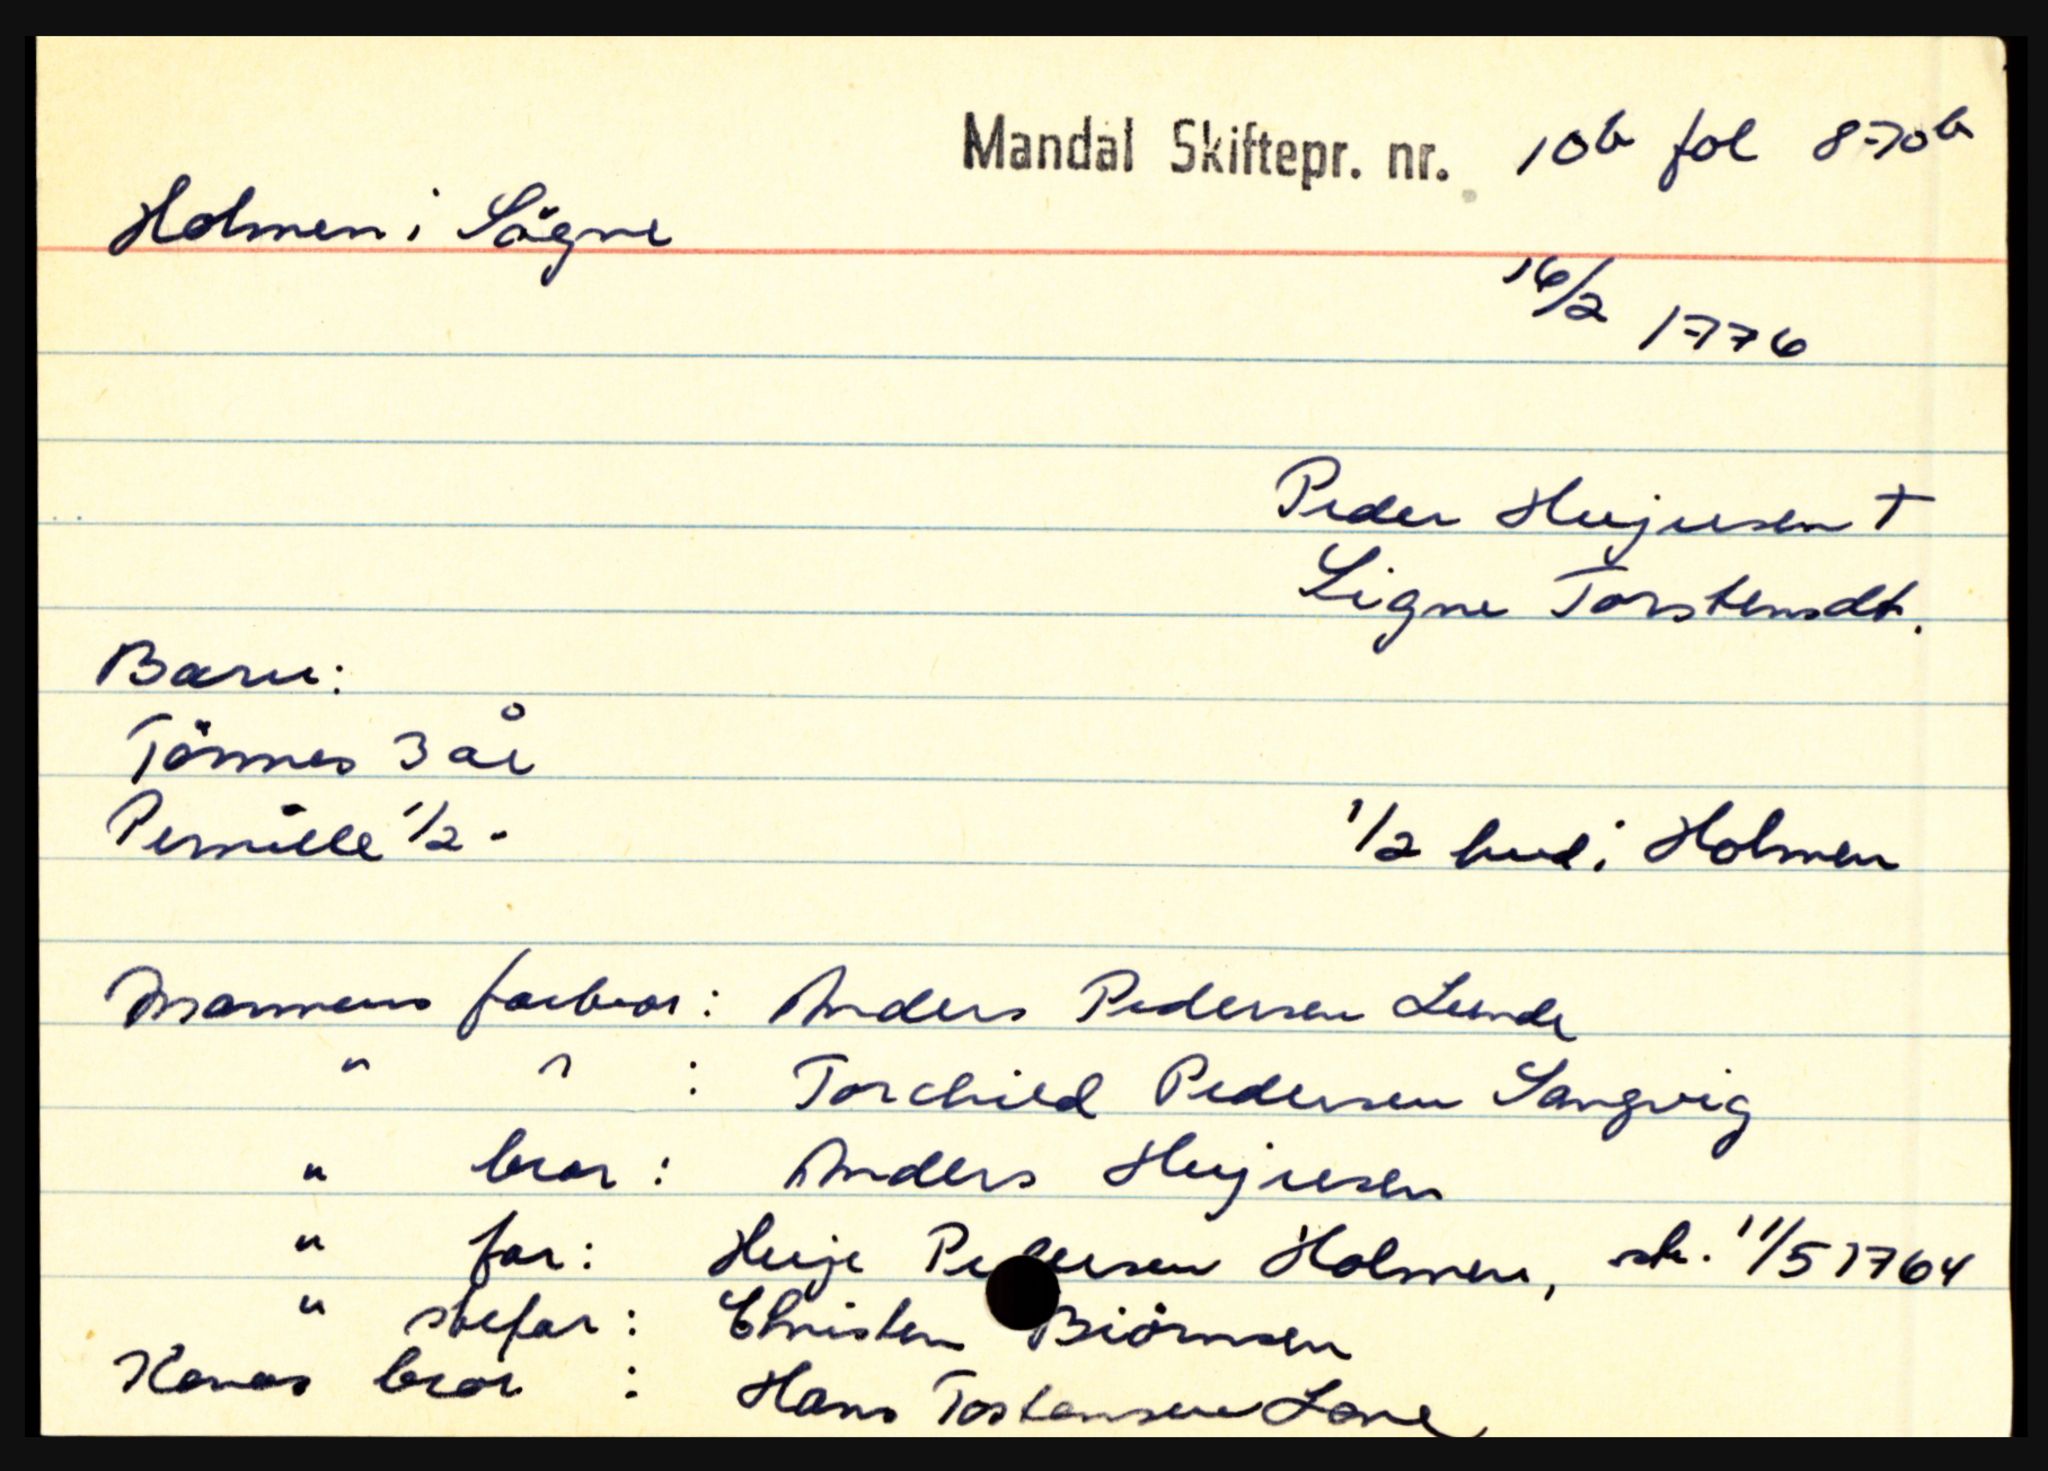 Mandal Skiftepr. nr. 10b fol 870b
Holmen i Sögne
16/2 1776
Peder Heijesen †
Signe Torstensdt.
Barn:
Tönnes 3 år
Pernille 1/2 -
1/2 hud i Holmen
Mannens farbror: Anders Pedersen Lunde
" " : Torchild Pedersen Sangvig
" bror: Anders Heijesen
" far: Heije Pedersen Holmen, sk. 11/5 1764
" stefar: Christen Biörnsen
Konas bror : Hans Tostensen Lone